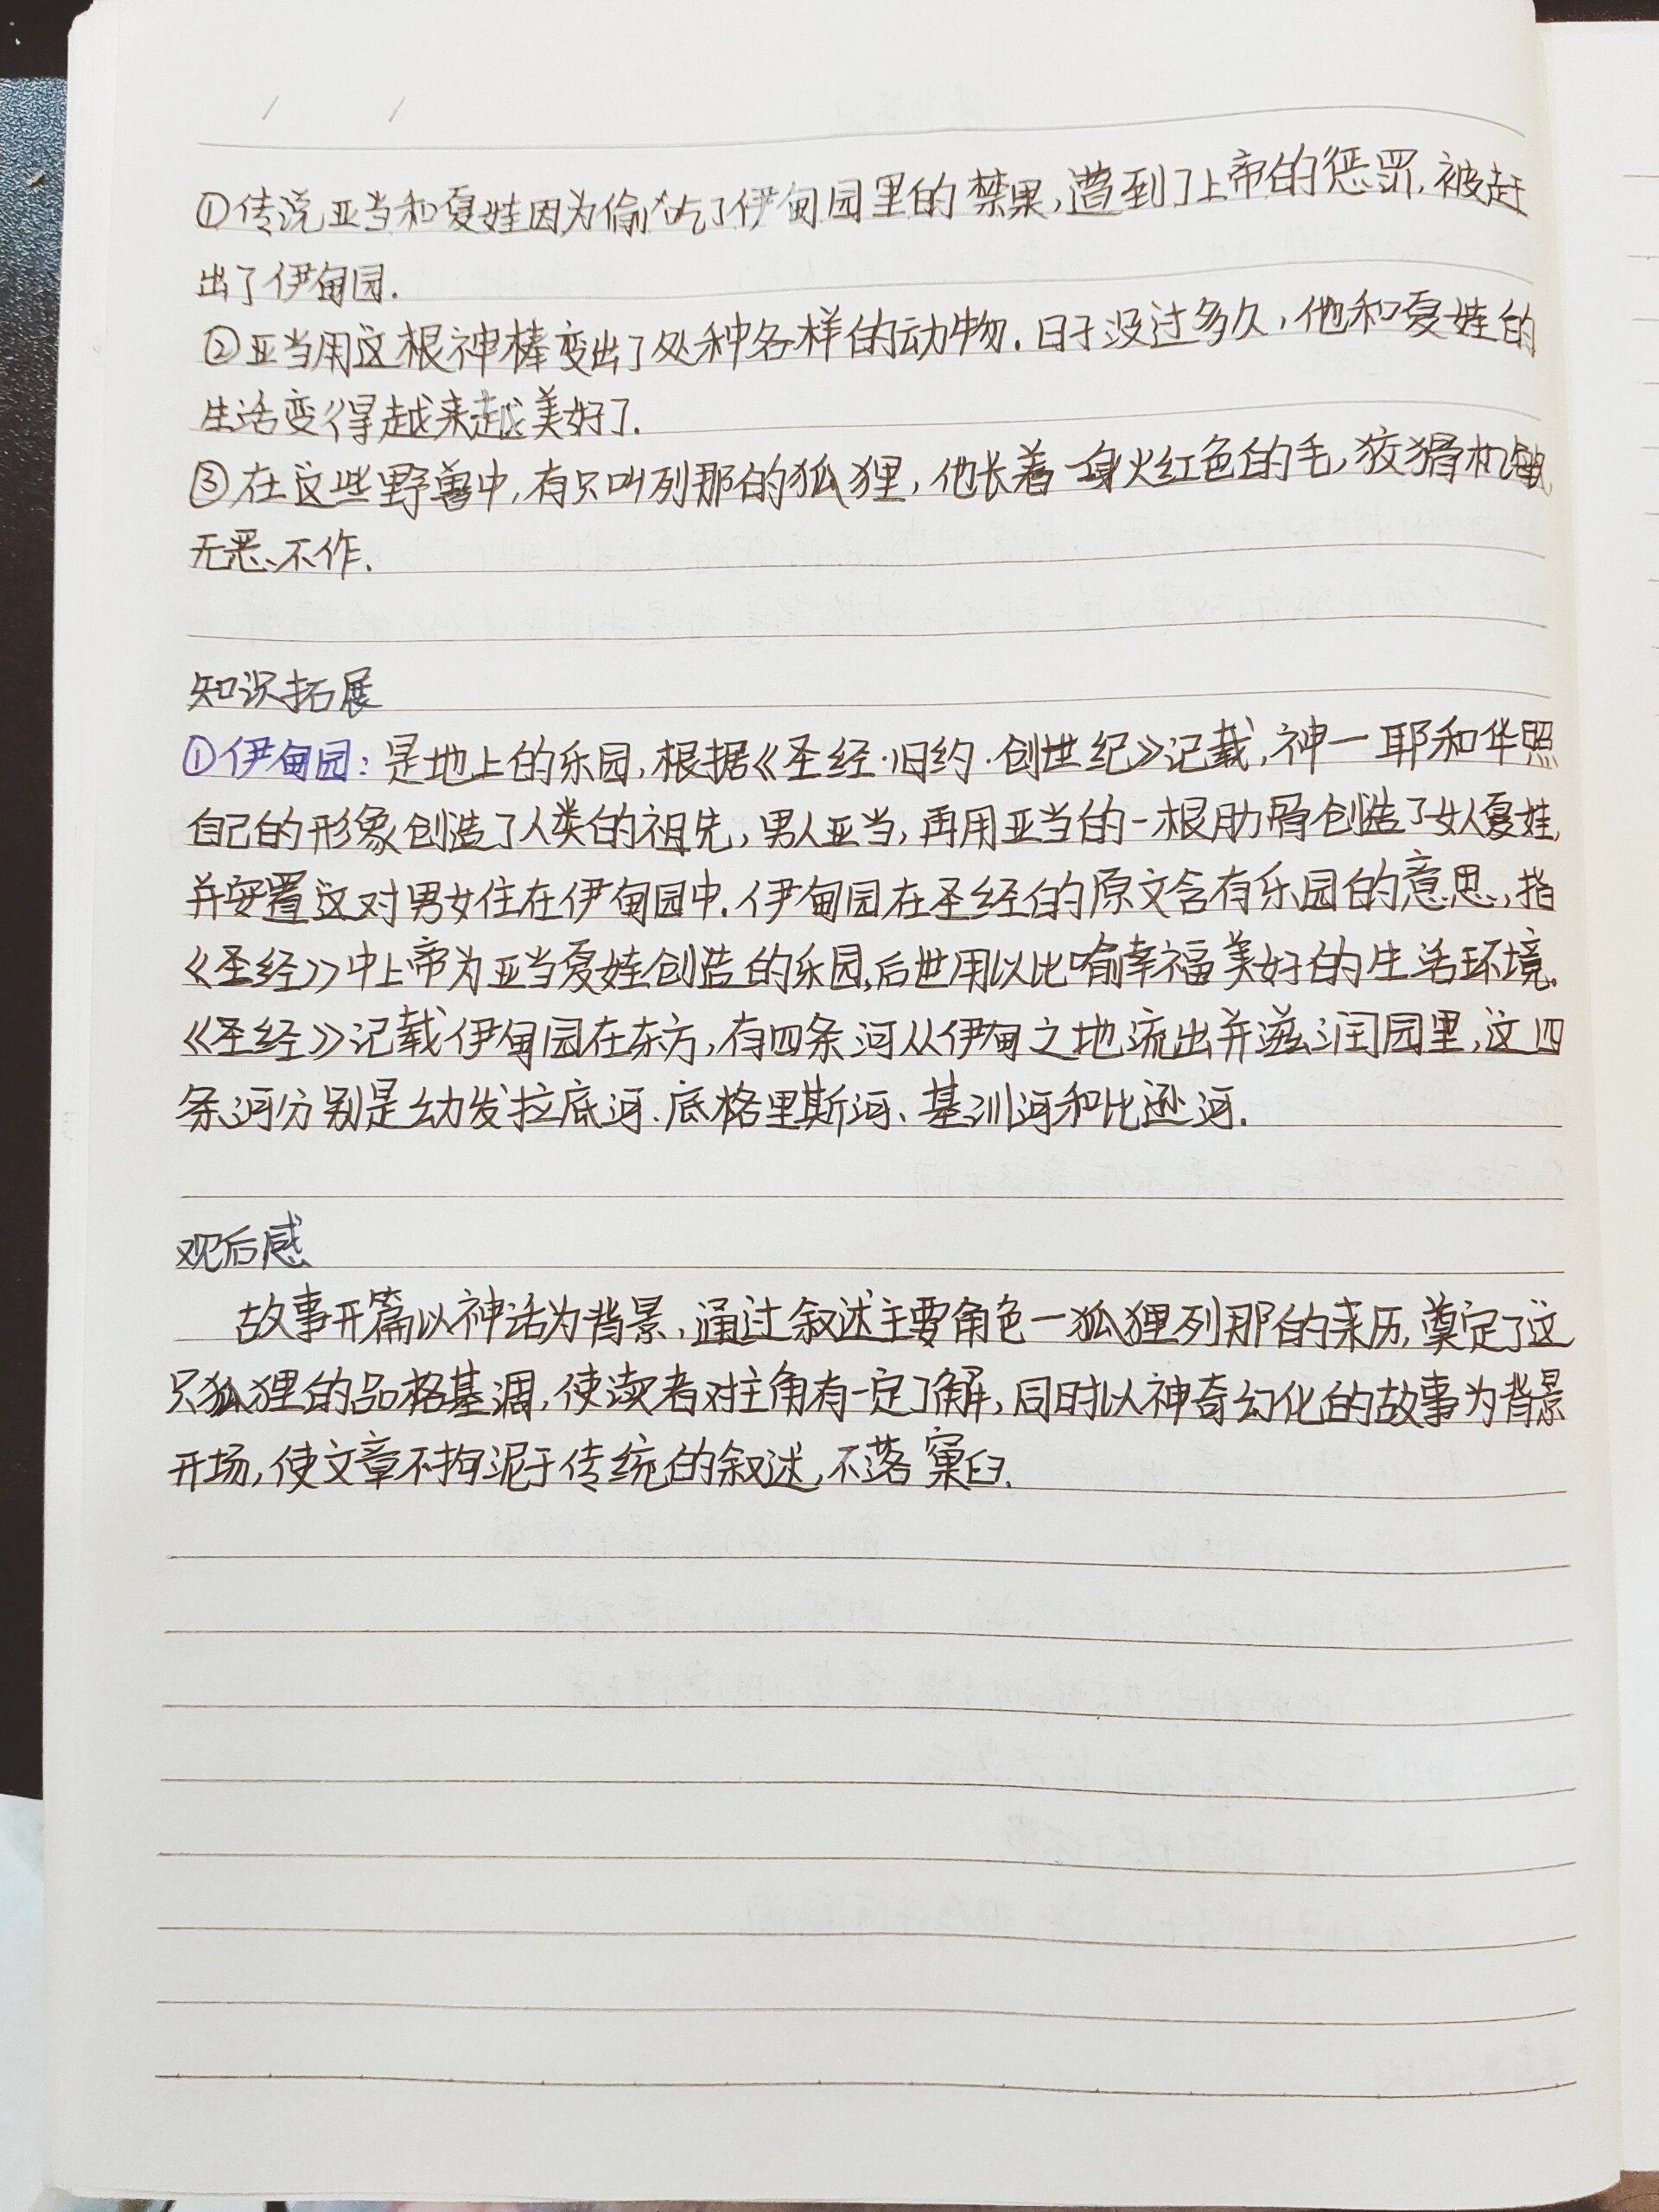 ①传说亚当和夏娃因为偷吃了伊甸园里的禁果,遭到了上帝的惩罚,被赶
出了伊甸园.
②亚当用这根神棒变出了各种各样的动物.日子没过多久,他和夏娃的
生活变得越来越美好了.
③在这些野兽中,有只叫列那的狐狸,他长着一身火红色的毛,狡猾机敏
无恶不作.
知识拓展
①伊甸园:是地上的乐园,根据《圣经·旧约·创世纪》记载,神一耶和华照
自己的形象创造了人类的祖先,男人亚当,再用亚当的一根肋骨创造了女人夏娃,
并安置这对男女住在伊甸园中.伊甸园在圣经的原文含有乐园的意思,指
《圣经》中上帝为亚当夏娃创造的乐园,后世用以比喻幸福美好的生活环境.
《圣经》记载伊甸园在东方,有四条河从伊甸之地流出并滋润园里,这四
条河分别是幼发拉底河、底格里斯河、基训河和比逊河.
观后感
故事开篇以神话为背景,通过叙述主要角色一狐狸列那的来历,奠定了这
只狐狸的品格基调,使读者对主角有一定了解,同时以神奇幻化的故事为背景
开场,使文章不拘泥于传统的叙述,不落窠臼.